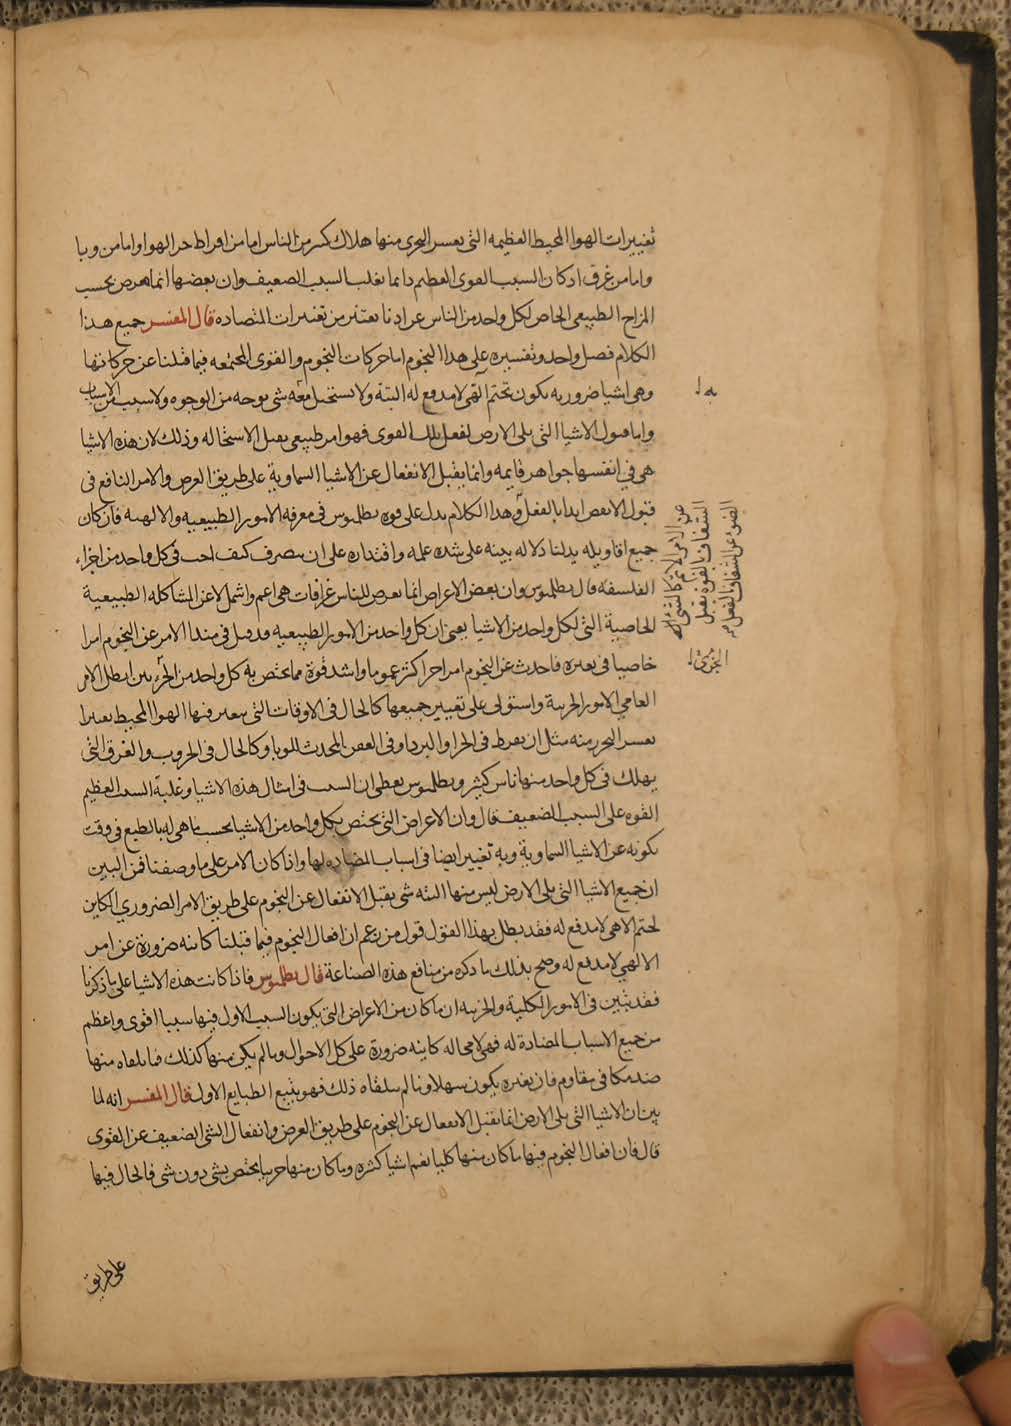 تغييرات الهوا المحيط العظيمه التى يعسر التحرى منها هلاك كثير من الناس اما من افراط حر الهوا واما من وبا
واما من غرق اذ كان السبب القوى العظيم دايما يغلب السبب الضعيف وان بعضها انما يعرض بحسب
المزاج الطبيعى الخاص لكل واحد من الناس عن ادنا تغير من تغييرات المتضاده قال المفسر جميع هذا
الكلام فصل واحد وتفسيره على هذا النجوم اما حركات النجوم والقوى المجتمعه فيما قبلنا عن حركاتها
وهى اشيا ضروريه يكون بحتم الهى لا مدفع له البته ولا يستحيل معه شى بوجه من الوجوه ولا سبب من الاسباب
واما قبول الاشيا التى يلى الارض لفعل تلك القوى فهو امر طبيعى يقبل الاستحاله وذلك لان هذه الاشيا
هى فى انفسها جواهر قايمه وانما يقبل الانفعال عن الاشيا السماوية على طريق العرض والامر النافع فى
قبول الانفعال بالفعل وهذا الكلام يدل على قوه بطلميوس فى معرفه الامور الطبيعيه والالهيه فان كان
جميع اقاويله يدلنا دلاله بينه على شده علمه واقتداره على ان يتصرف كيف احب فى كل واحد من اجزاء
الفلسفه قال بطلميوس وان بعض الاعراض انما يعرض للناس عن افات هى اعم واشمل لا عن المشاكله الطبيعية
الخاصية التى لكل واحد من الاشيا يعنى ان كل واحد من الامور الطبيعيه وقد قبل فى مبدا الامر عن النجوم امرا
خاصيا فى تغيره فاحدث عن النجوم امر اخر اكثر عموما واشد قوة مما يختص به كل واحد من الجزءين ابطل الامر
العامى الامور الجزيية واستولى على تغيير جميعها كالحال فى الاوقات التى يتغير فيها الهوا المحيط تغيرا
يعسر التحرز منه مثل ان يفرط فى الحر او البرد او فى العفن المحدث للوبا وكالحال فى الحروب والغرق التى
يهلك فى كل واحد منها ناس كثير وبطلميوس يعطى ان السبب فى امثال هذه الاشيا هو غلبة السبب العظيم
القوه على السبب الضعيف فقال وان الاعراض التى يختص بكل واحد من الاشيا بحسب ما هى له بالطبع فى وقت
تكونه عن الاشيا السماوية وبه تغيير ايضا فى اسباب المضاده لها واذا كان الامر على ما وصفنا فمن البين
ان جميع الاشيا التى يلى الارض ليس منها البته شى يقبل الانفعال عن النجوم على طريق الامر الضرورى الكاين
لحتم الاهى لا مدفع له فقد بطل بهذا القول قول من زعم ان افعال النجوم فيما قبلنا كاينه ضرورة عن امر
الالهى لا مدفع له وصح بذلك ما ذكره من منافع هذه الصناعة قال بطلميوس فاذا كانت هذه الاشيا على ما ذكرنا
فقد تبين فى الامور الكلية والجزييه ان ما كان من الاعراض التى يكون السبب الاول فيها سببا اقوى واعظم
من جميع الاسباب المضادة له فهى لا محاله كاينه ضرورة على كل الاحوال وما لم يكن منها كذلك فما تلقاه منها
ضد مكافى مقاوم فان تغيره يكون سهلا وما لم تلقاه ذلك فهو يتبع الطبايع الاول قال المفسر انه لما
بين ان الاشيا التى يلى الارض انما تقبل الانفعال عن النجوم على طريق العرض وانفعال الشى الضعيف عن القوى
قال فان افعال النجوم فيها ما كان منها كليا يعم اشيا كثيره وما كان منها جزييا يختص بشى دون شى فالحال فيها
على طريق